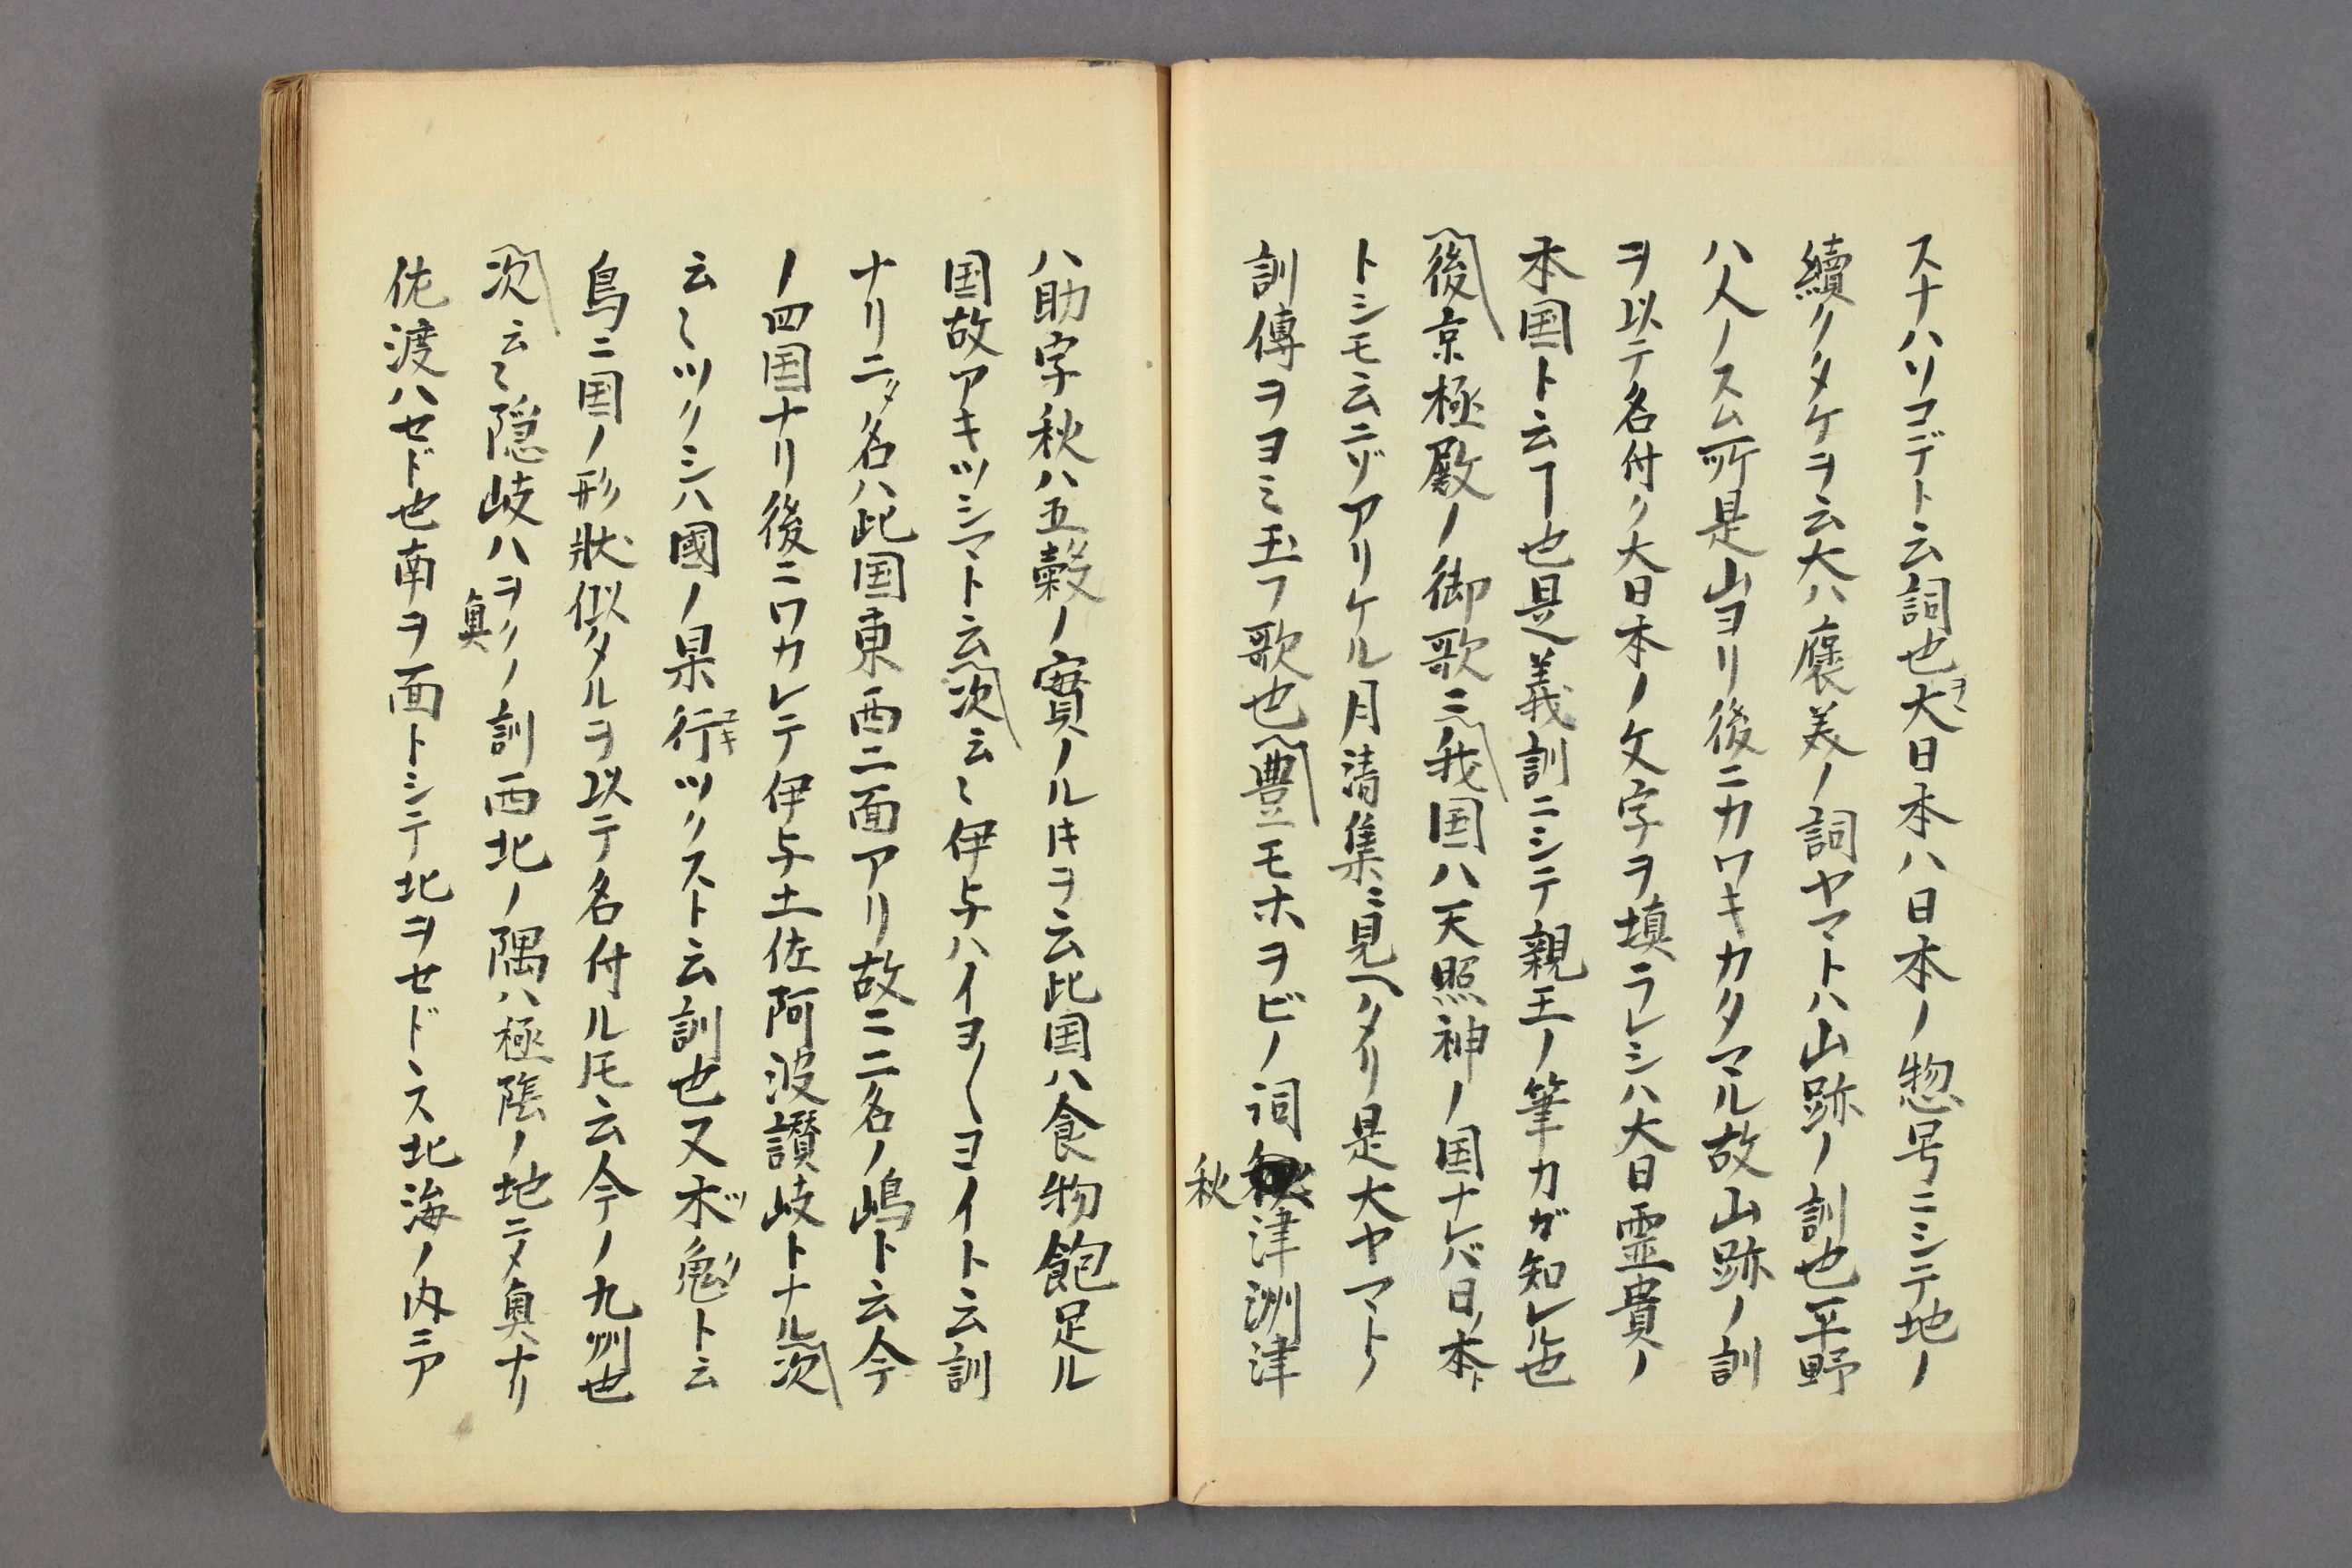 スナハソコデト云詞也大日本ハ日本ノ惣号ニシテ地ノ
續クタケヲ云大ハ褒美ノ詞ヤマトハ山跡ノ訓也平野
ハ人ノスム所是山ヨリ後ニカワキカタマル故山跡ノ訓
ヲ以テ名付ク大日本ノ文字ヲ填ラレシハ大日霊貴ノ
本国ト云ヿ也是義訓ニシテ親王ノ筆カガ知レル也
後京極殿ノ御歌ニ我国ハ天照神ノ国ナレバ日ノ本ト
トシモ云ニゾアリケル月清集ニ見ヘタリ是大ヤマトノ
訓傳ヲヨミ玉フ歌也豊モホヲビノ詞秋津洲津
ハ助字秋ハ五穀ノ實ノル時ヲ云此国ハ食物飽足ル
国故アキツシマト云次云〻伊与ハイヨ〱ヨイト云訓
ナリ二タ名ハ此国東西二面アリ故ニ二名ノ嶋ト云今
ノ四国ナリ後ニワカレテ伊与土佐阿波讃岐トナル次
云〻ツクシハ國ノ杲行ツクスト云訓也又木ツ兎クト云
鳥ニ国ノ形状似タルヲ以テ名付ル𪜈云今ノ九州也
次云〻隠岐ハヲクノ訓西北ノ隅ハ極陰ノ地ニメ奥ナリ
奥
佐渡ハセド也南ヲ面トシテ北ヲセドヽス北海ノ内ニア